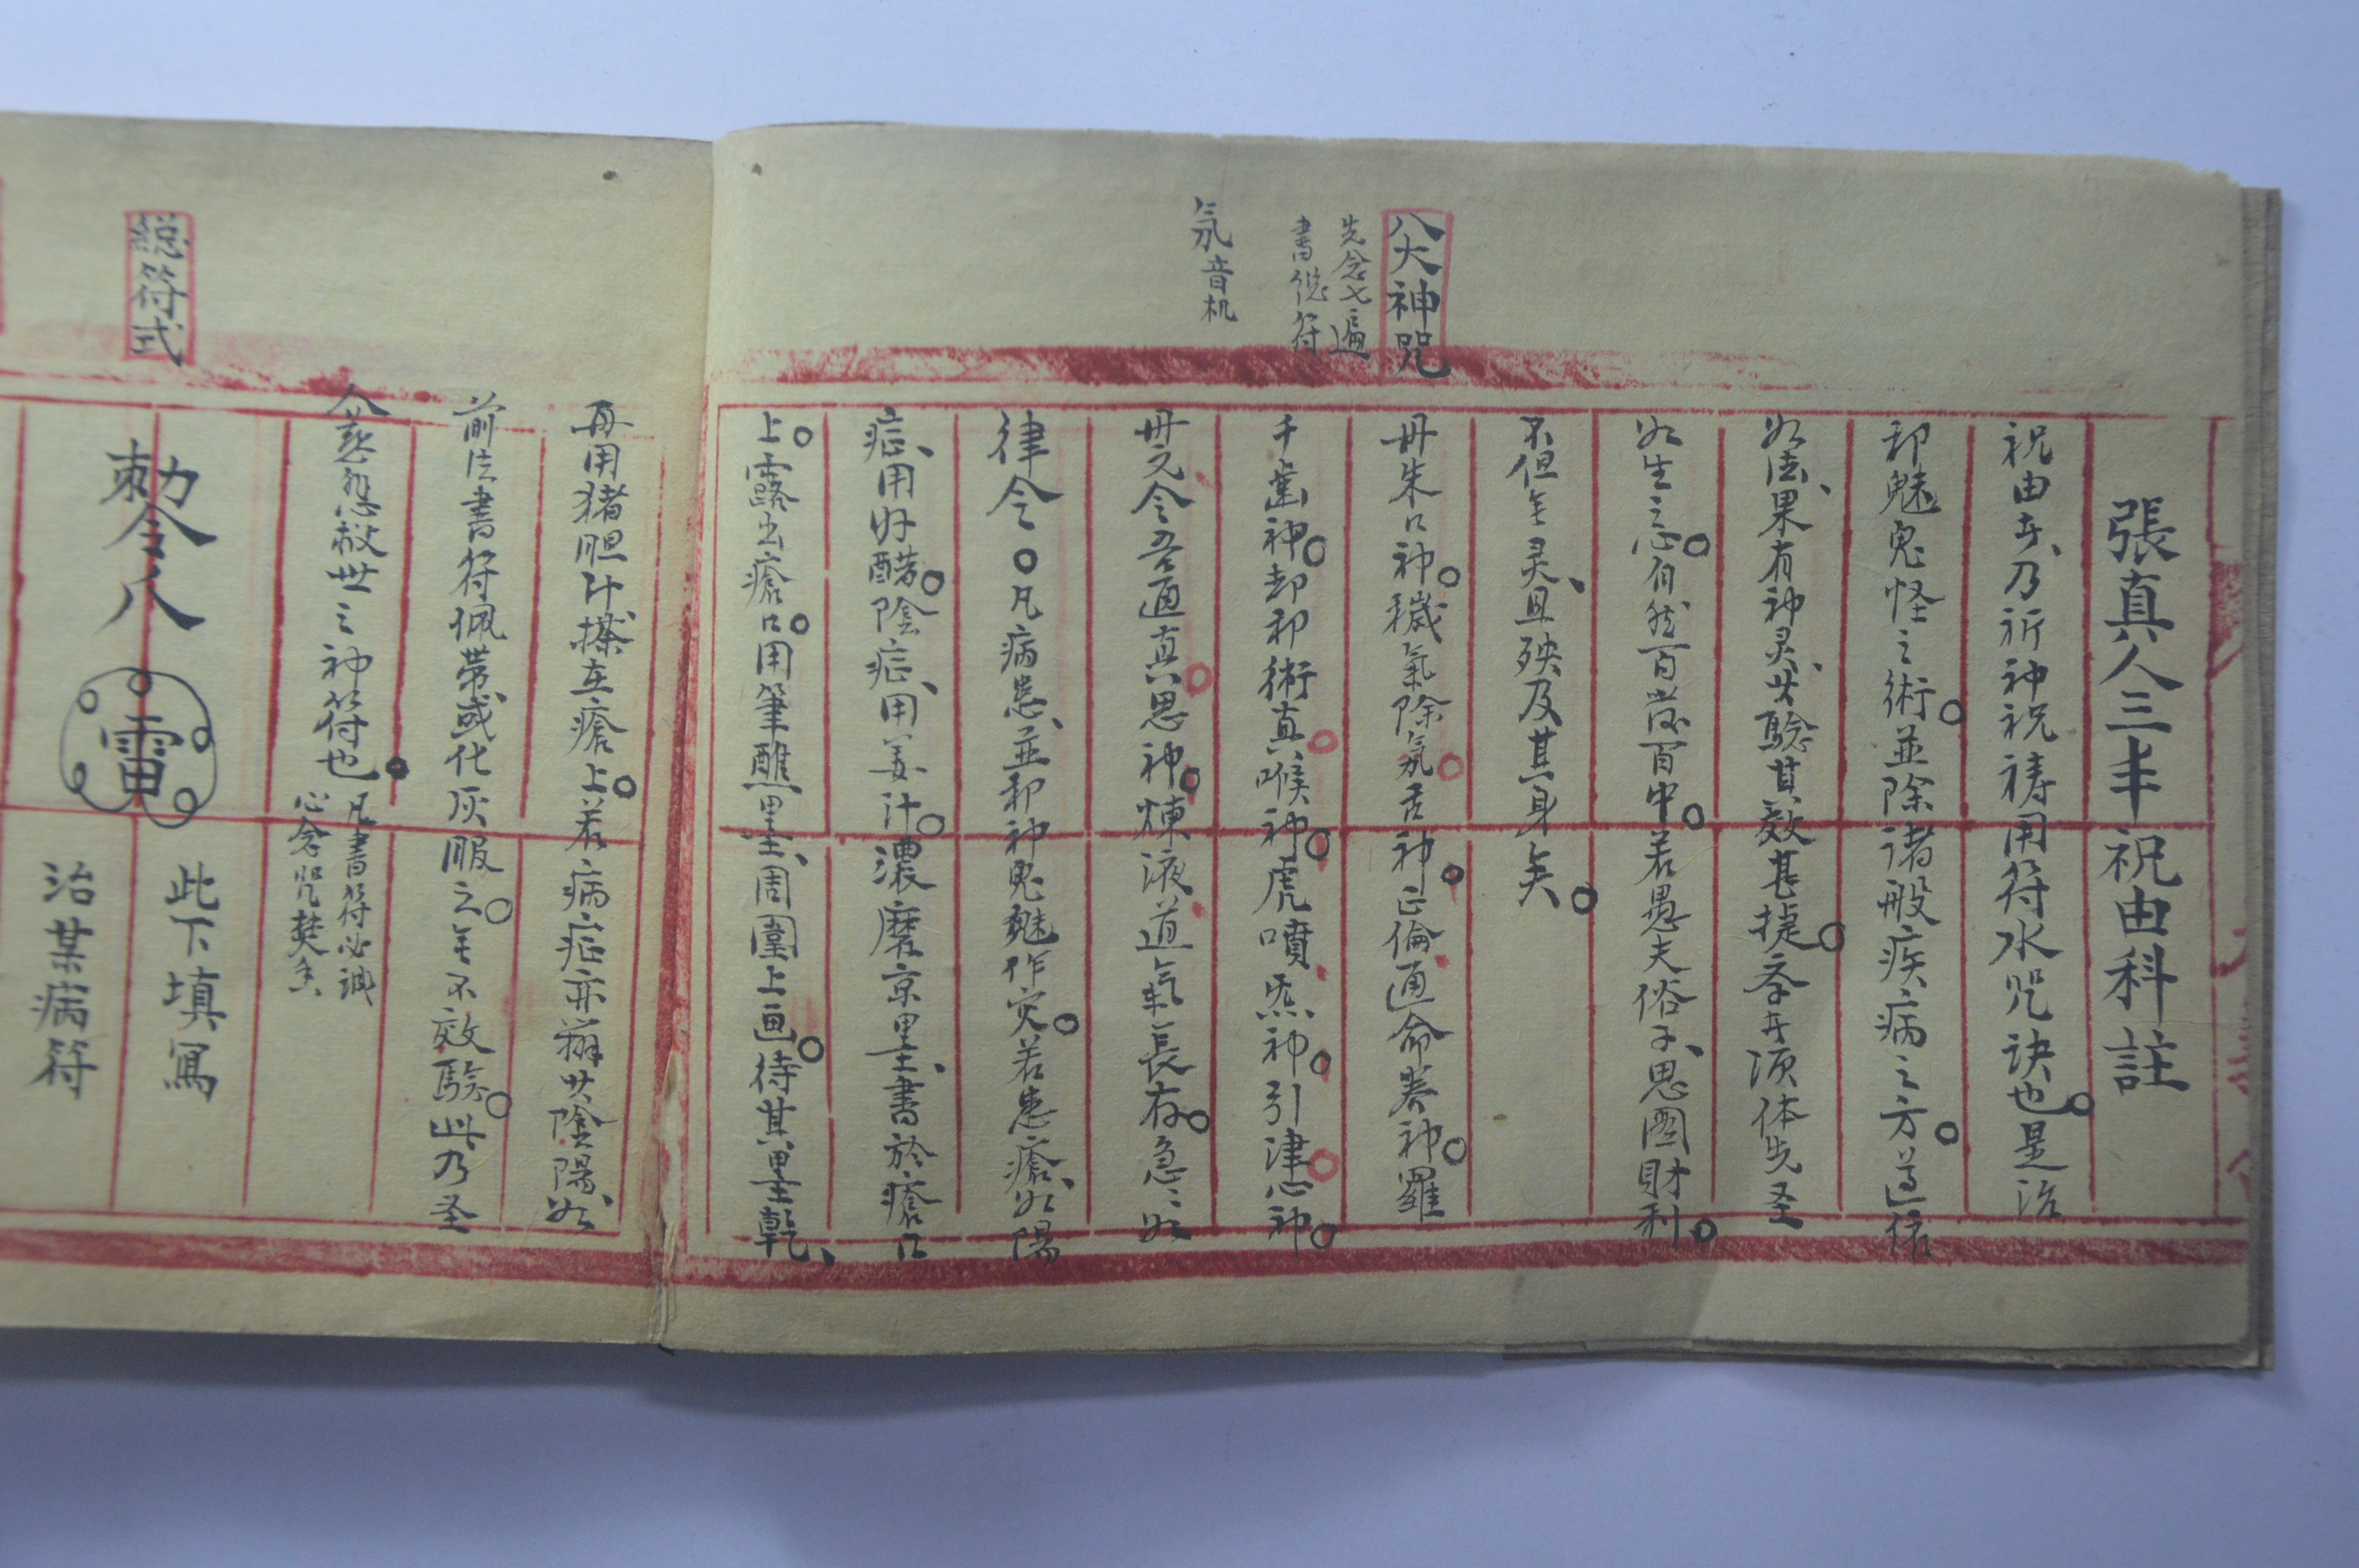 張真人三丰祝由科註
祝由者、乃祈神祝禱用符水咒訣也。是治
邪魅鬼怪之術。並除諸般疾病之方。尊信
如法、果有神灵、其驗其效甚捷。奉者須体先圣
好生之心。自然百發百中。若愚夫俗子、思圖財利。
不但無灵、且殃及其身矣。
八大神咒
先念七遍
書總符
丹朱口神。穢氣除氛。舌神。正倫通命養神。羅
千齒神。却邪衛真。喉神。虎噴炁神。引津。心神。
丹元令吾通真。思神。煉液道氣長存。急〻如
氛音机
律令。凡病患、並邪神鬼魅作灾。若患瘡、如陽
症、用好醋。陰症、用姜汁。濃磨京墨、書於瘡口
上。露出瘡口。用筆醮墨、周圍上画。待其墨乾、
再用猪胆汁搽在瘡上。若病症亦辨其陰陽、如
前法書符佩帶或化灰服之。無不效驗。此乃圣
人慈悲救世之神符也。
凡書符必誠
心念咒焚香
總符式
勅令八
雷
此下填寫
治某病符